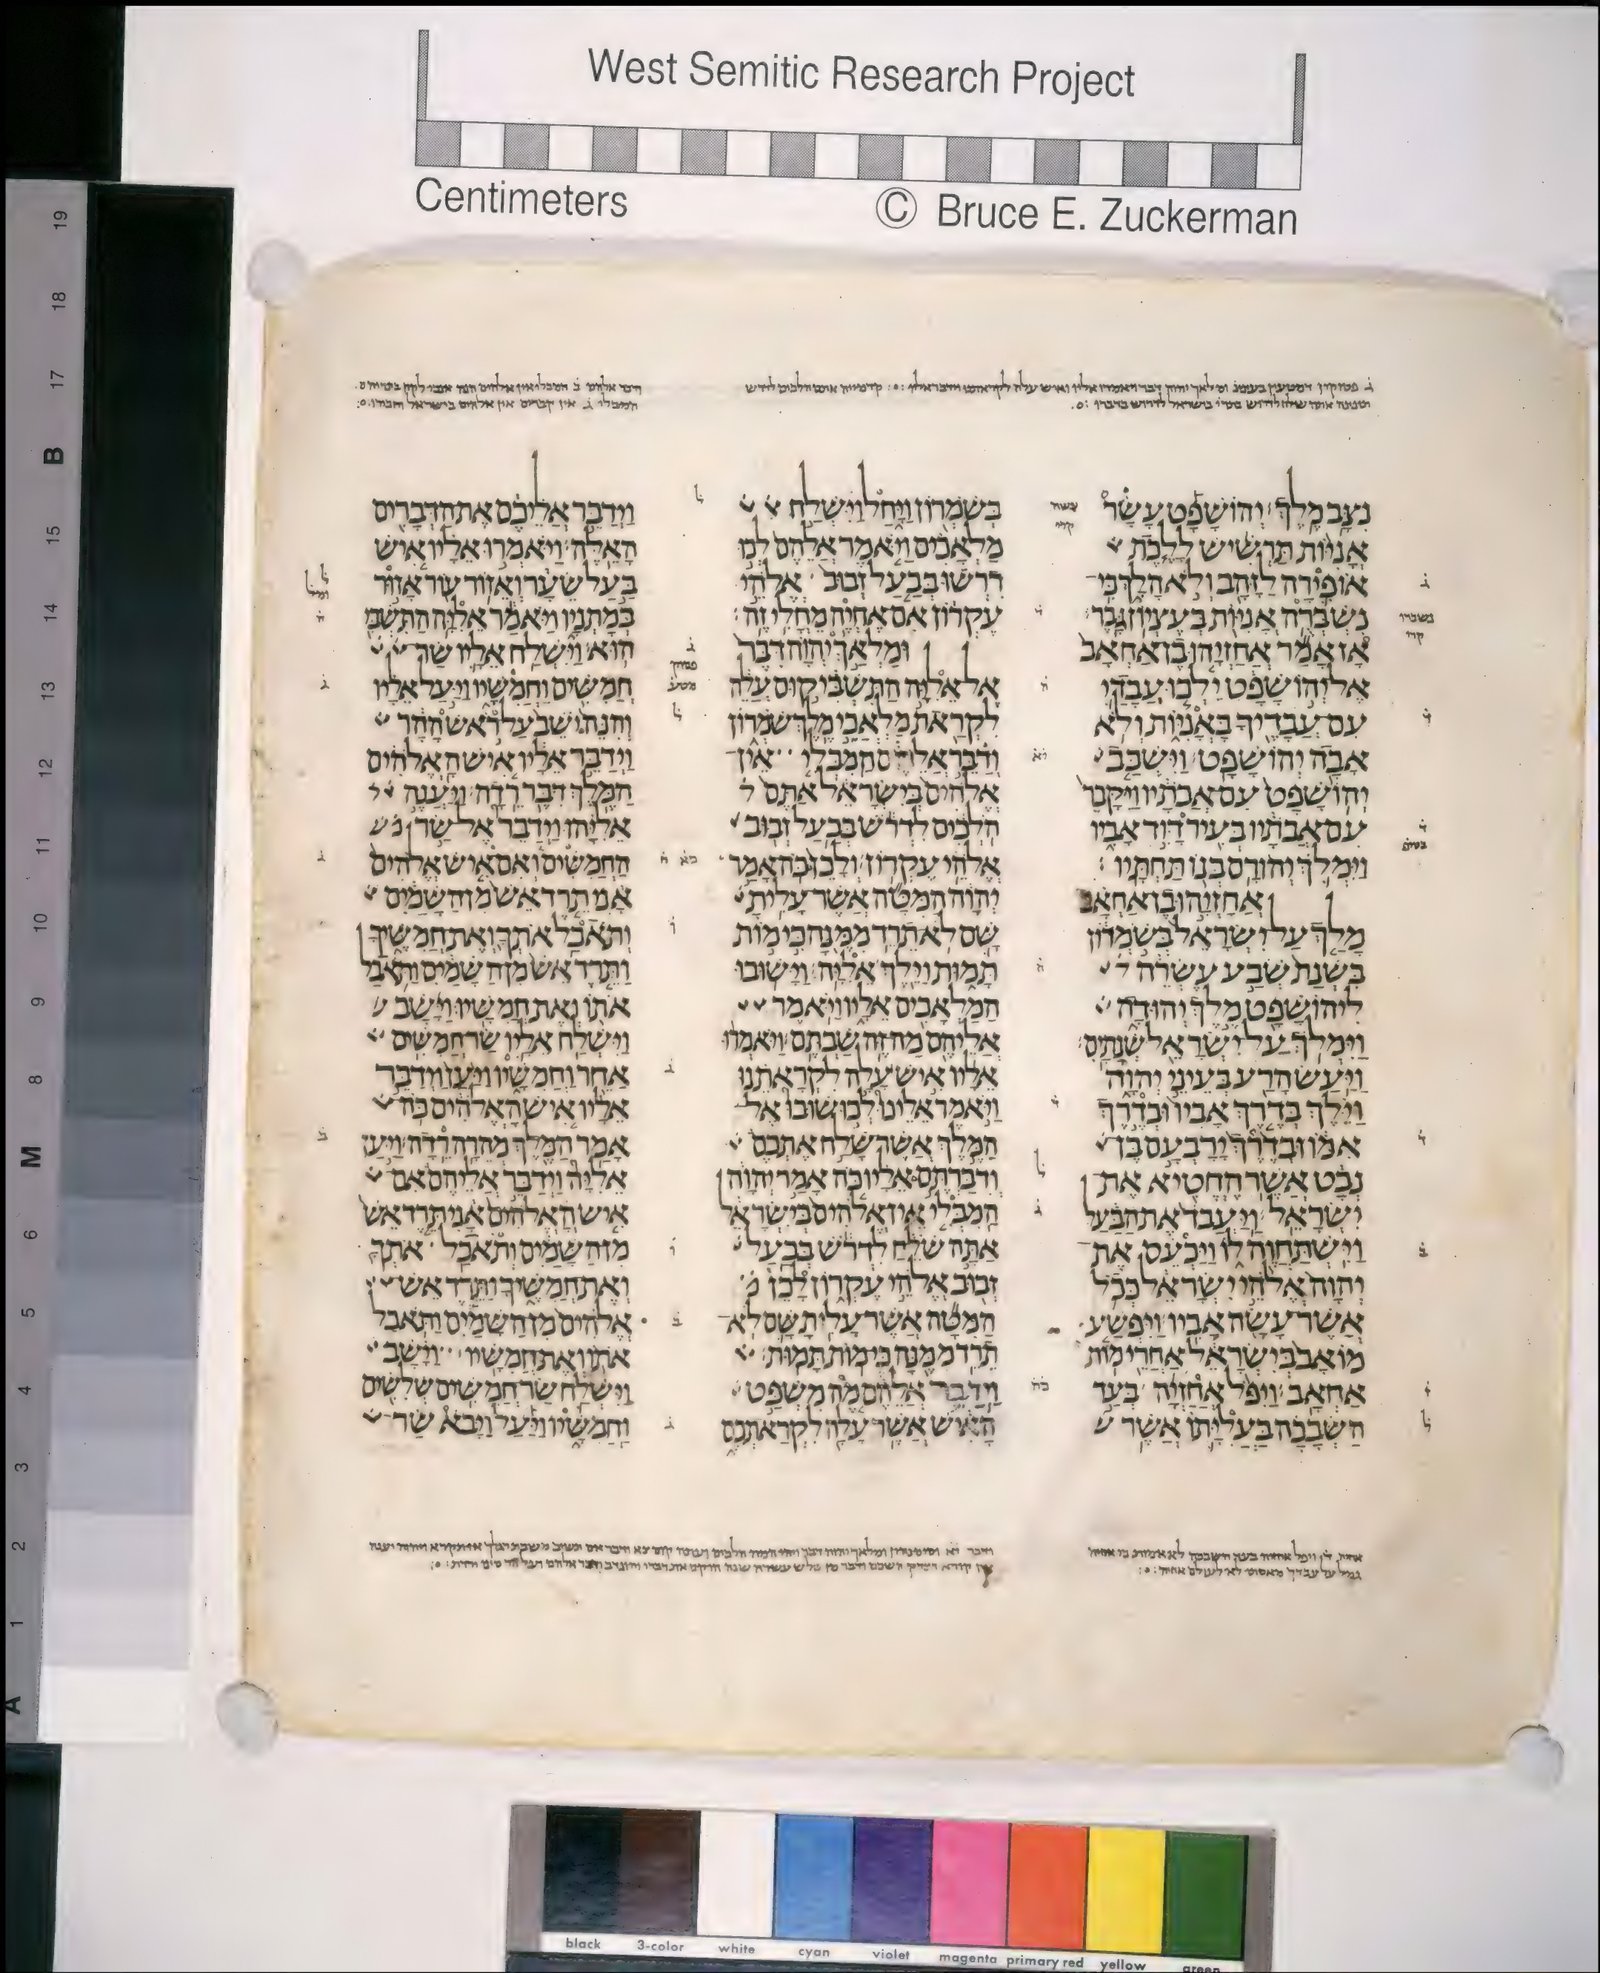 West Semitic Research Project
Centimeters
© Bruce E. Zuckerman
נצב מלך יהושפט עשר
אניות תרשיש ללכת
אופירה לזהב ולא הלך כי
נשברה אניות בעציון גבר
אז אמר אחזיהו בן אחאב
אל יהושפט ילכו עבדי
עם עבדיך באניות ולא
אבה יהושפט וישכב
יהושפט עם אבתיו ויקבר
עם אבתיו בעיר דוד אביו
וימלך יהורם בנו תחתיו
אחזיהו בן אחאב
מלך על ישראל בשמרון
בשנת שבע עשרה
ליהושפט מלך יהודה
וימלך על ישראל שנתים
ויעש הרע בעיני יהוה
וילך בדרך אביו ובדרך
אמו ובדרך ירבעם בן
נבט אשר החטיא את
ישראל ויעבד את הבעל
וישתחוה לו ויכעס את
יהוה אלהי ישראל ככל
אשר עשה אביו ויפשע
מואב בישראל אחרי מות
אחאב ויפל אחזיה בעד
השבכה בעליתו אשר
בשמרון ויחל וישלח
מלאכים ויאמר אלהם לכו
דרשו בבעל זבוב אלהי
עקרון אם אחיה מחלי זה
ומלאך יהוה דבר
אל אליה התשבי קום עלה
לקראת מלאכי מלך שמרון
ודבר אלהם המבלי אין
אלהים בישראל אתם
הלכים לדרש בבעל זבוב
אלהי עקרון ולכן כה אמר
יהוה המטה אשר עלית
שם לא תרד ממנה כי מות
תמות וילך אליה וישובו
המלאכים אליו ויאמר
אליהם מה זה שבתם ויאמרו
אליו איש עלה לקראתנו
ויאמר אלינו לכו שובו אל
המלך אשר שלח אתכם
ודברתם אליו כה אמר יהוה
המבלי אין אלהים בישראל
אתה שלח לדרש בבעל
זבוב אלהי עקרון לכן
המטה אשר עלית שם לא
תרד ממנה כי מות תמות
וידבר אלהם מה משפט
האיש אשר עלה לקראתכם
וידבר אליכם את הדברים
האלה ויאמרו אליו איש
בעל שער ואזור עור אזור
במתניו ויאמר אליה התשבי
הוא וישלח אליו שר
חמשים וחמשיו ויעל אליו
והנה ישב על ראש ההר
וידבר אליו איש האלהים
המלך דבר רדה ויענה
אליהו וידבר אל שר
החמשים ואם איש אלהים
אני תרד אש מן השמים
ותאכל אתך ואת חמשיך
ותרד אש מן השמים ותאכל
אתו ואת חמשיו וישב
וישלח אליו שר חמשים
אחר וחמשיו ויען וידבר
אליו איש האלהים כה
אמר המלך מהרה רדה ויען
אליה וידבר אליהם אם
איש האלהים אני תרד אש
מן השמים ותאכל אתך
ואת חמשיך ותרד אש
אלהים מן השמים ותאכל
אתו ואת חמשיו וישב
וישלח שר חמשים שלשים
וחמשיו ויעל ויבא שר
19
18
17
B
15
14
13
12
11
10
9
8
M
6
5
4
3
2
1
A
black
3-color
white
cyan
violet
magenta
primary red
yellow
green